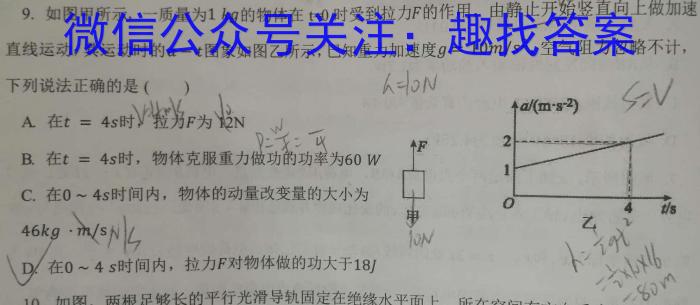 9. 如图甲所示,一质量为1kg的物体在t=0时受到拉力F的作用,由静止开始竖直向上做加速
微信公众号关注:趣找答案
直线运动,其运动时的a-t图象如图乙所示,已知重力加速度g=10m/s²,空气阻力忽略不计,
下列说法正确的是( )
G=10N
A. 在t = 4s时,拉力F为12N
B. 在t = 4s时,物体克服重力做功的功率为60 W
C. 在0 ~ 4s时间内,物体的动量改变量的大小为
46kg · m/s
D. 在0 ~ 4 s时间内,拉力F对物体做的功大于18J
F
甲
10N
a/(m·s-2)
2
1
O
4
t/s
乙
S=V
10. 如图,两根足够长的平行光滑导轨固定在绝缘水平面上,所在空间有